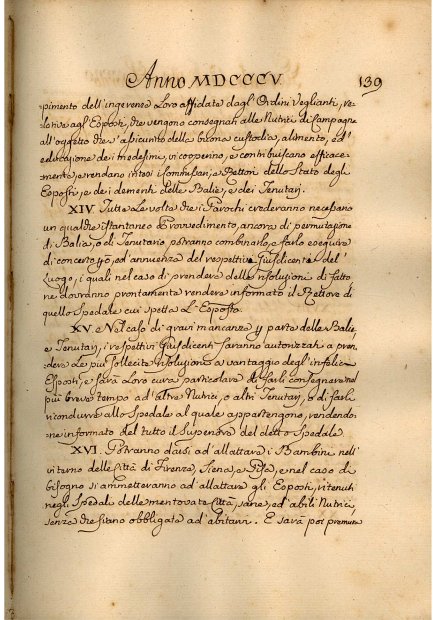 Anno MDCCCV 139
pimento dell'ingerenza Loro affidata dagl'Ordini Veglianti, re-
lativa agl'Esposti, che vengono consegnati alle Nutrici di Campagna
all'oggetto che s'assicunto della buona custodia, alimento, ed'
educazione dei medesimi, vi cooperino, e contribuiscano efficace-
mente, e rendano intesi i Commissari, e Rettori dello Stato degli
Esposti, e dei demeriti delle Balie, e dei Tenutarj.
XIV. Tutte Le volte che i Parochi crederanno necessario
un qualche istantaneo Provvedimento, ancora di permutazione
di Balia, o di Tenutario, potranno combinarlo, e farlo eseguire
di concerto però, ed'annuenza del respettivo Giusdicente del'
Luogo, i quali nel caso di prendere delle risoluzioni di fatto
ne dovranno prontamente rendere informato il Rettore di
quello Spedale cui spetta L'Esposto.
XV. Nel caso di gravi mancanze p parte delle Balie,
e Tenutarj, i respettivi Giusdicenti saranno autorizzati a pren-
dere Le più sollecite risoluzioni a vantaggio degl'infelici
Esposti, e sarà Loro cura particolare di farli consegnare nel
più breve tempo ad'altre Nutrici, o altri Tenutarj, o di farli
ricondurre allo Spedale al quale appartengono, rendendo-
ne informato del tutto il Superiore del detto Spedale.
XVI. Potranno darsi ad'allattare i Bambini nell'
interno delle Città di Firenze, Siena, e Pisa, e nel caso di
bisogno si ammetteranno ad'allattare gli Esposti, ritenuti
negli Spedali delle mentovate Città, sane, ed'abili Nutrici,
senza che siano obbligate ad'abitarvi. E sarà poi premura